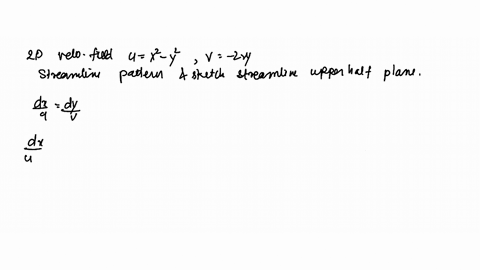 2D velo. field u = x² - y² , v = -2xy
Streamline pattern & sketch streamline upper half plane.
dx/u = dy/v
dx/u